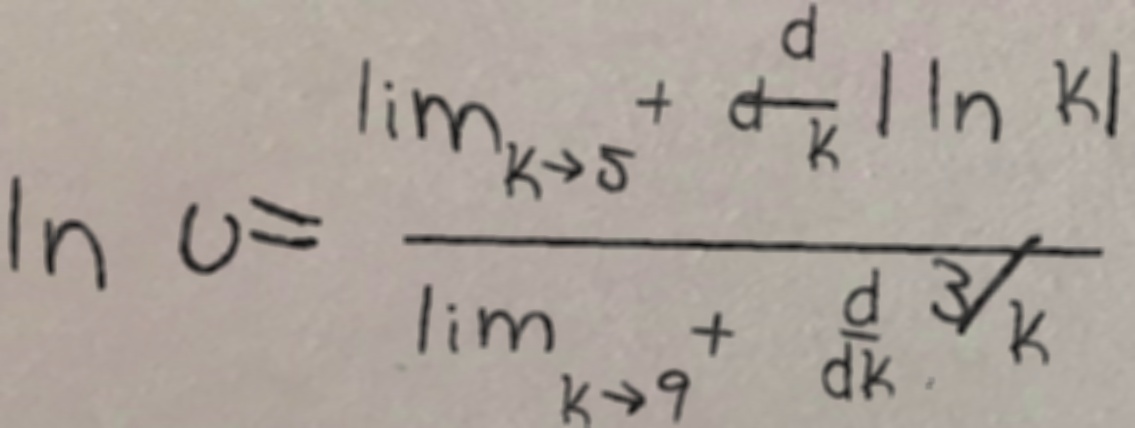 ln υ = \frac{\lim_{k \to 5^+} \frac{d}{dk} |\ln k|}{\lim_{k \to 9^+} \frac{d}{dk} \sqrt[3]{k}}